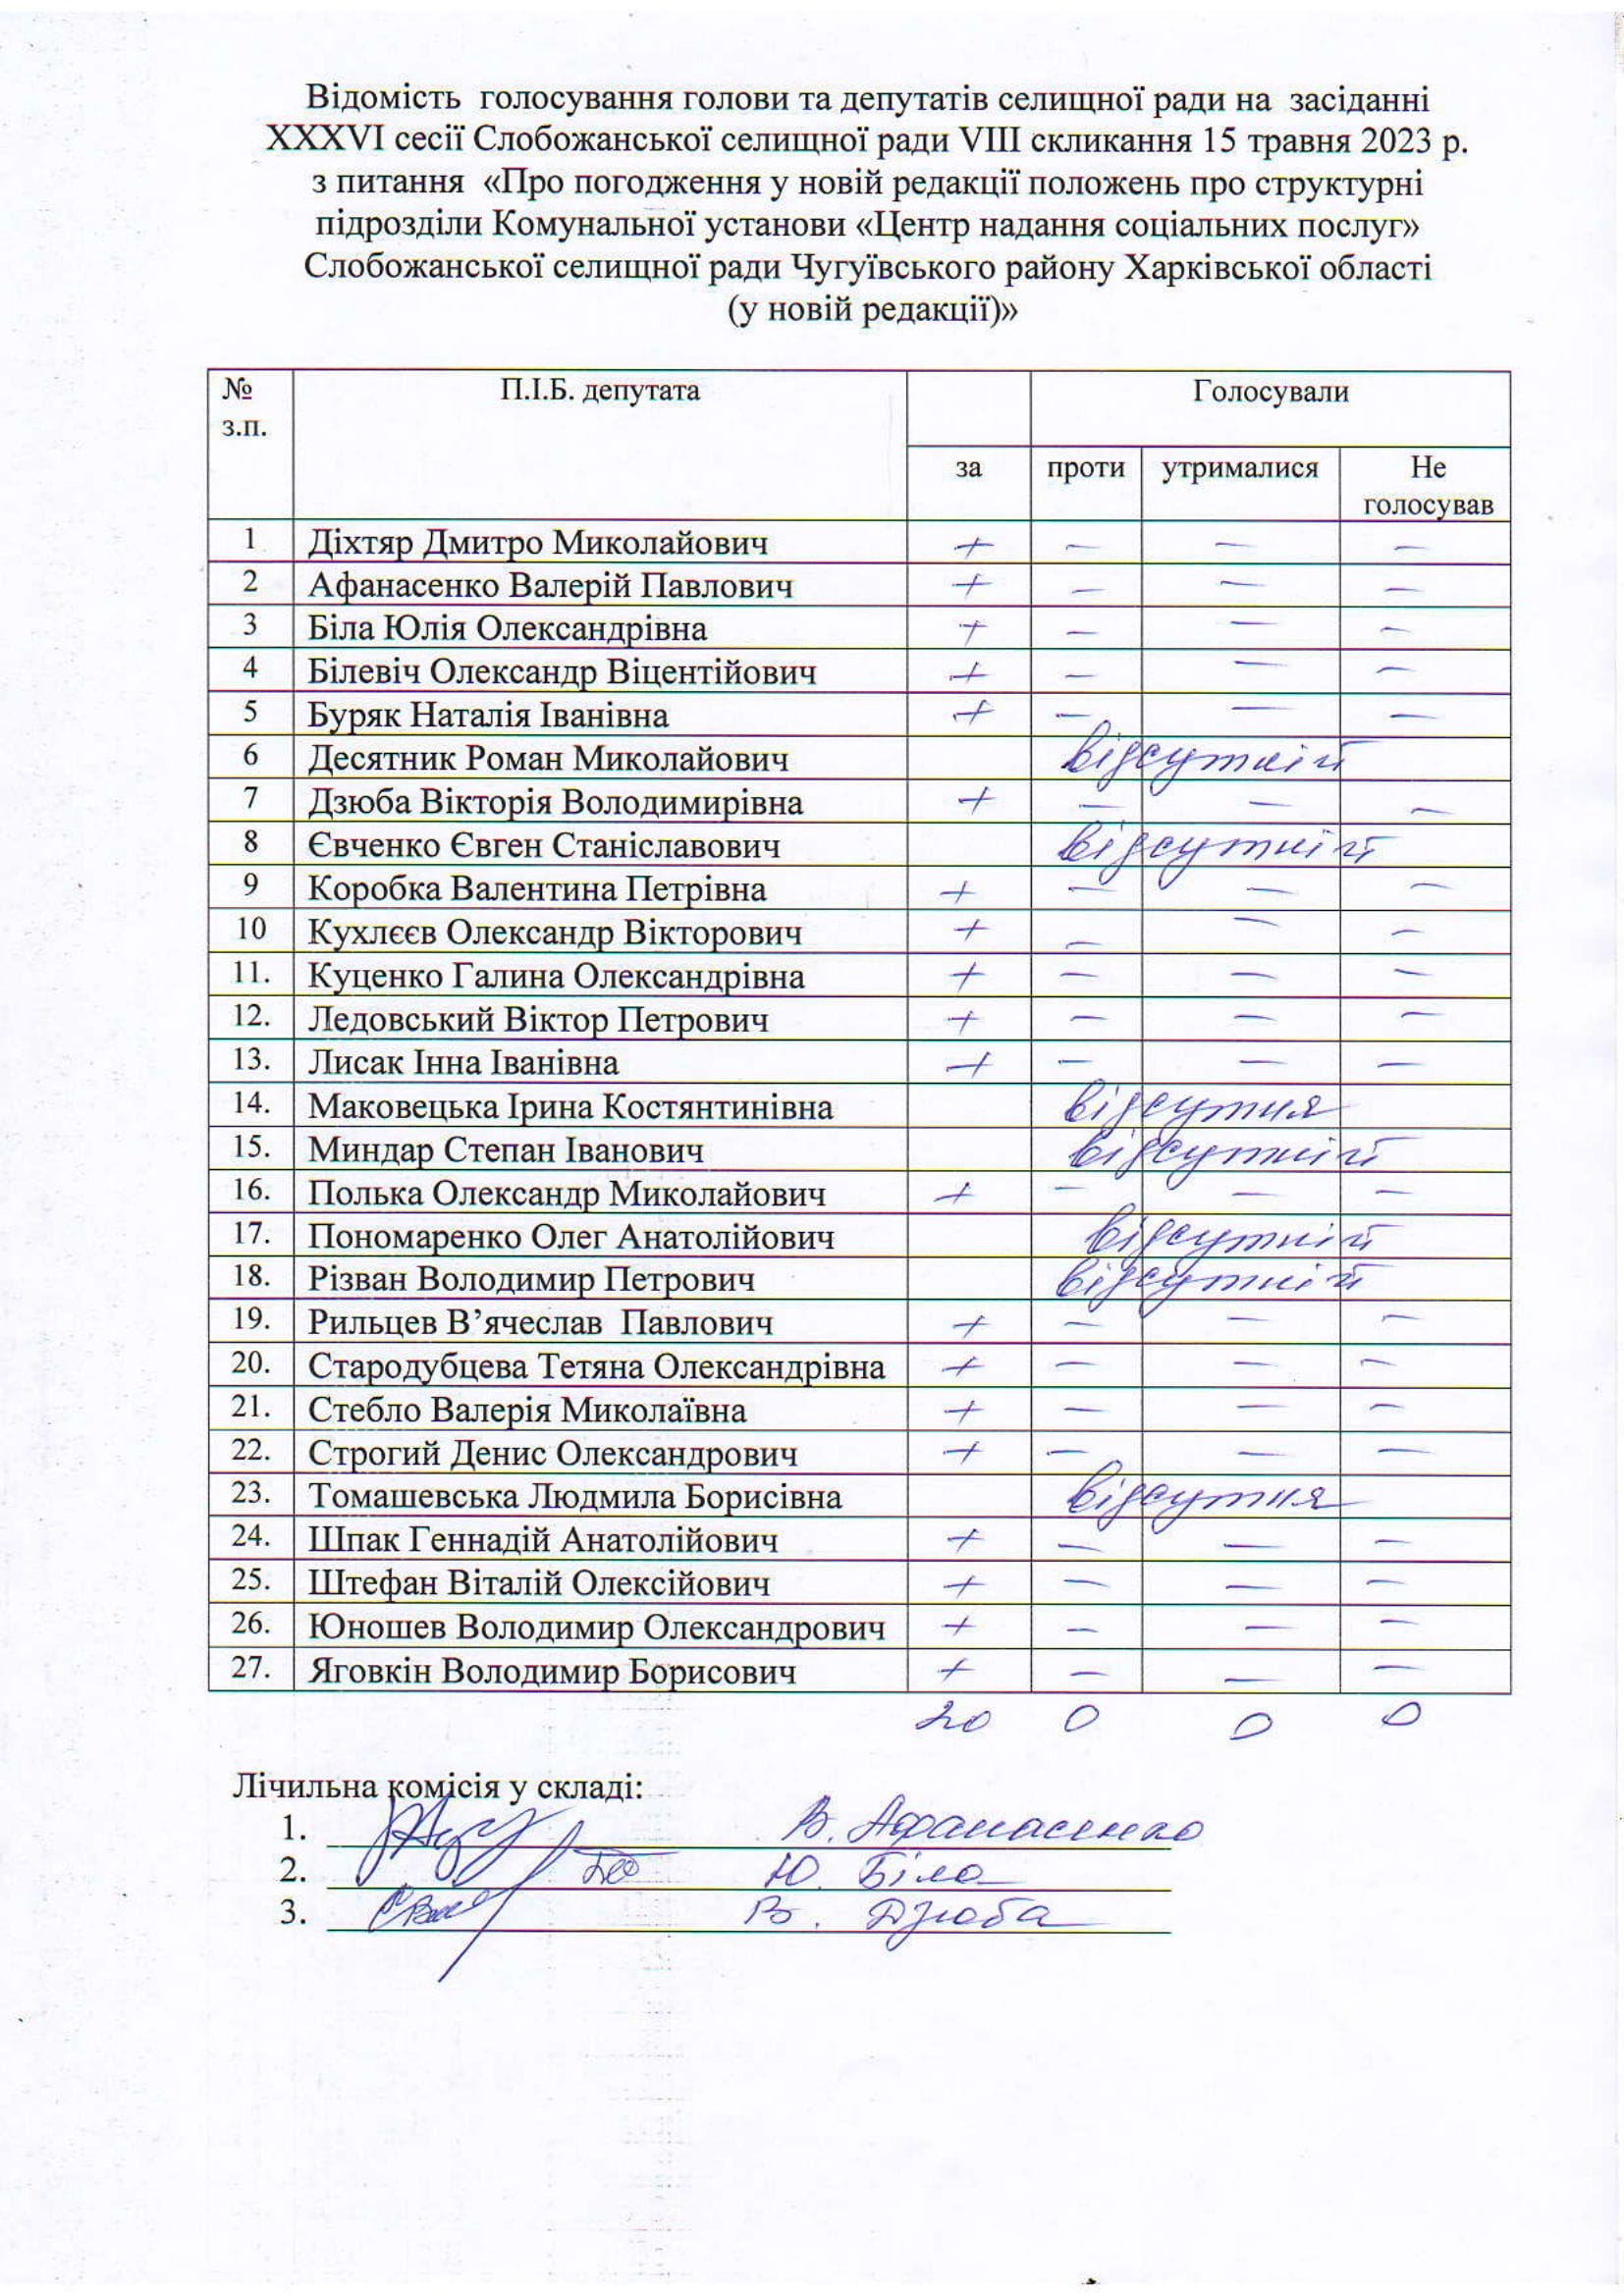 Відомість голосування голови та депутатів селищної ради на засіданні
XXXVI сесії Слобожанської селищної ради VIII скликання 15 травня 2023 р.
з питання «Про погодження у новій редакції положень про структурні
підрозділи Комунальної установи «Центр надання соціальних послуг»
Слобожанської селищної ради Чугуївського району Харківської області
(у новій редакції)»
№ з.п. П.І.Б. депутата Голосували
за проти утрималися Не голосував
1 Діхтяр Дмитро Миколайович + – – –
2 Афанасенко Валерій Павлович + – – –
3 Біла Юлія Олександрівна + – – –
4 Білевіч Олександр Віцентійович + – – –
5 Буряк Наталія Іванівна + – – –
6 Десятник Роман Миколайович відсутній
7 Дзюба Вікторія Володимирівна + – – –
8 Євченко Євген Станіславович відсутній
9 Коробка Валентина Петрівна + – – –
10 Кухлєєв Олександр Вікторович + – – –
11. Куценко Галина Олександрівна + – – –
12. Ледовський Віктор Петрович + – – –
13. Лисак Інна Іванівна + – – –
14. Маковецька Ірина Костянтинівна відсутня
15. Миндар Степан Іванович відсутній
16. Полька Олександр Миколайович + – – –
17. Пономаренко Олег Анатолійович відсутній
18. Різван Володимир Петрович відсутній
19. Рильцев В’ячеслав Павлович + – – –
20. Стародубцева Тетяна Олександрівна + – – –
21. Стебло Валерія Миколаївна + – – –
22. Строгий Денис Олександрович + – – –
23. Томашевська Людмила Борисівна відсутня
24. Шпак Геннадій Анатолійович + – – –
25. Штефан Віталій Олексійович + – – –
26. Юношев Володимир Олександрович + – – –
27. Яговкін Володимир Борисович + – – –
20 0 0 0
Лічильна комісія у складі:
1. В. Афанасенко
2. Ю. Біла
3. В. Дзюба